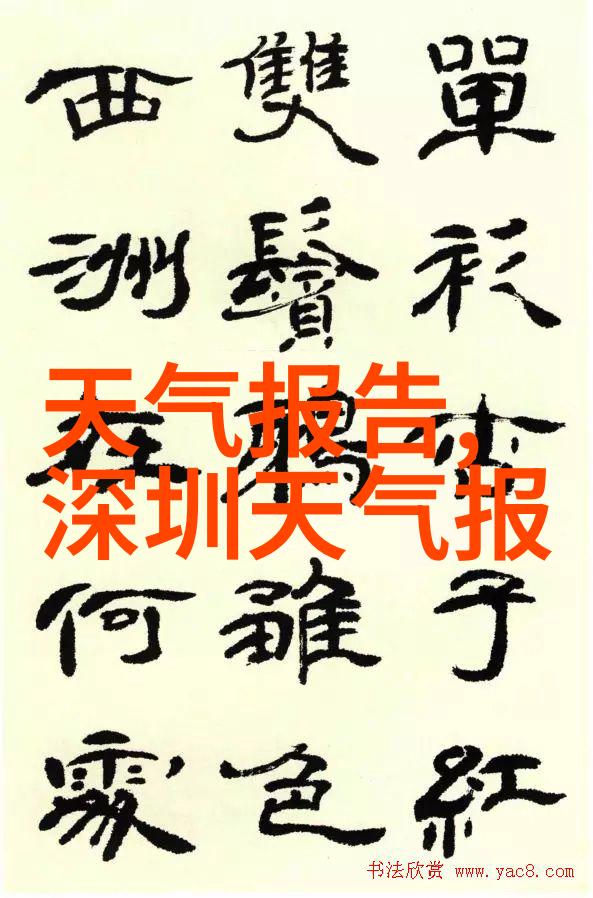 單衫杏子紅
雙鬢鴉雛色
西洲在何處
天气报告,
深圳天气报
书法欣赏 www.yac8.com